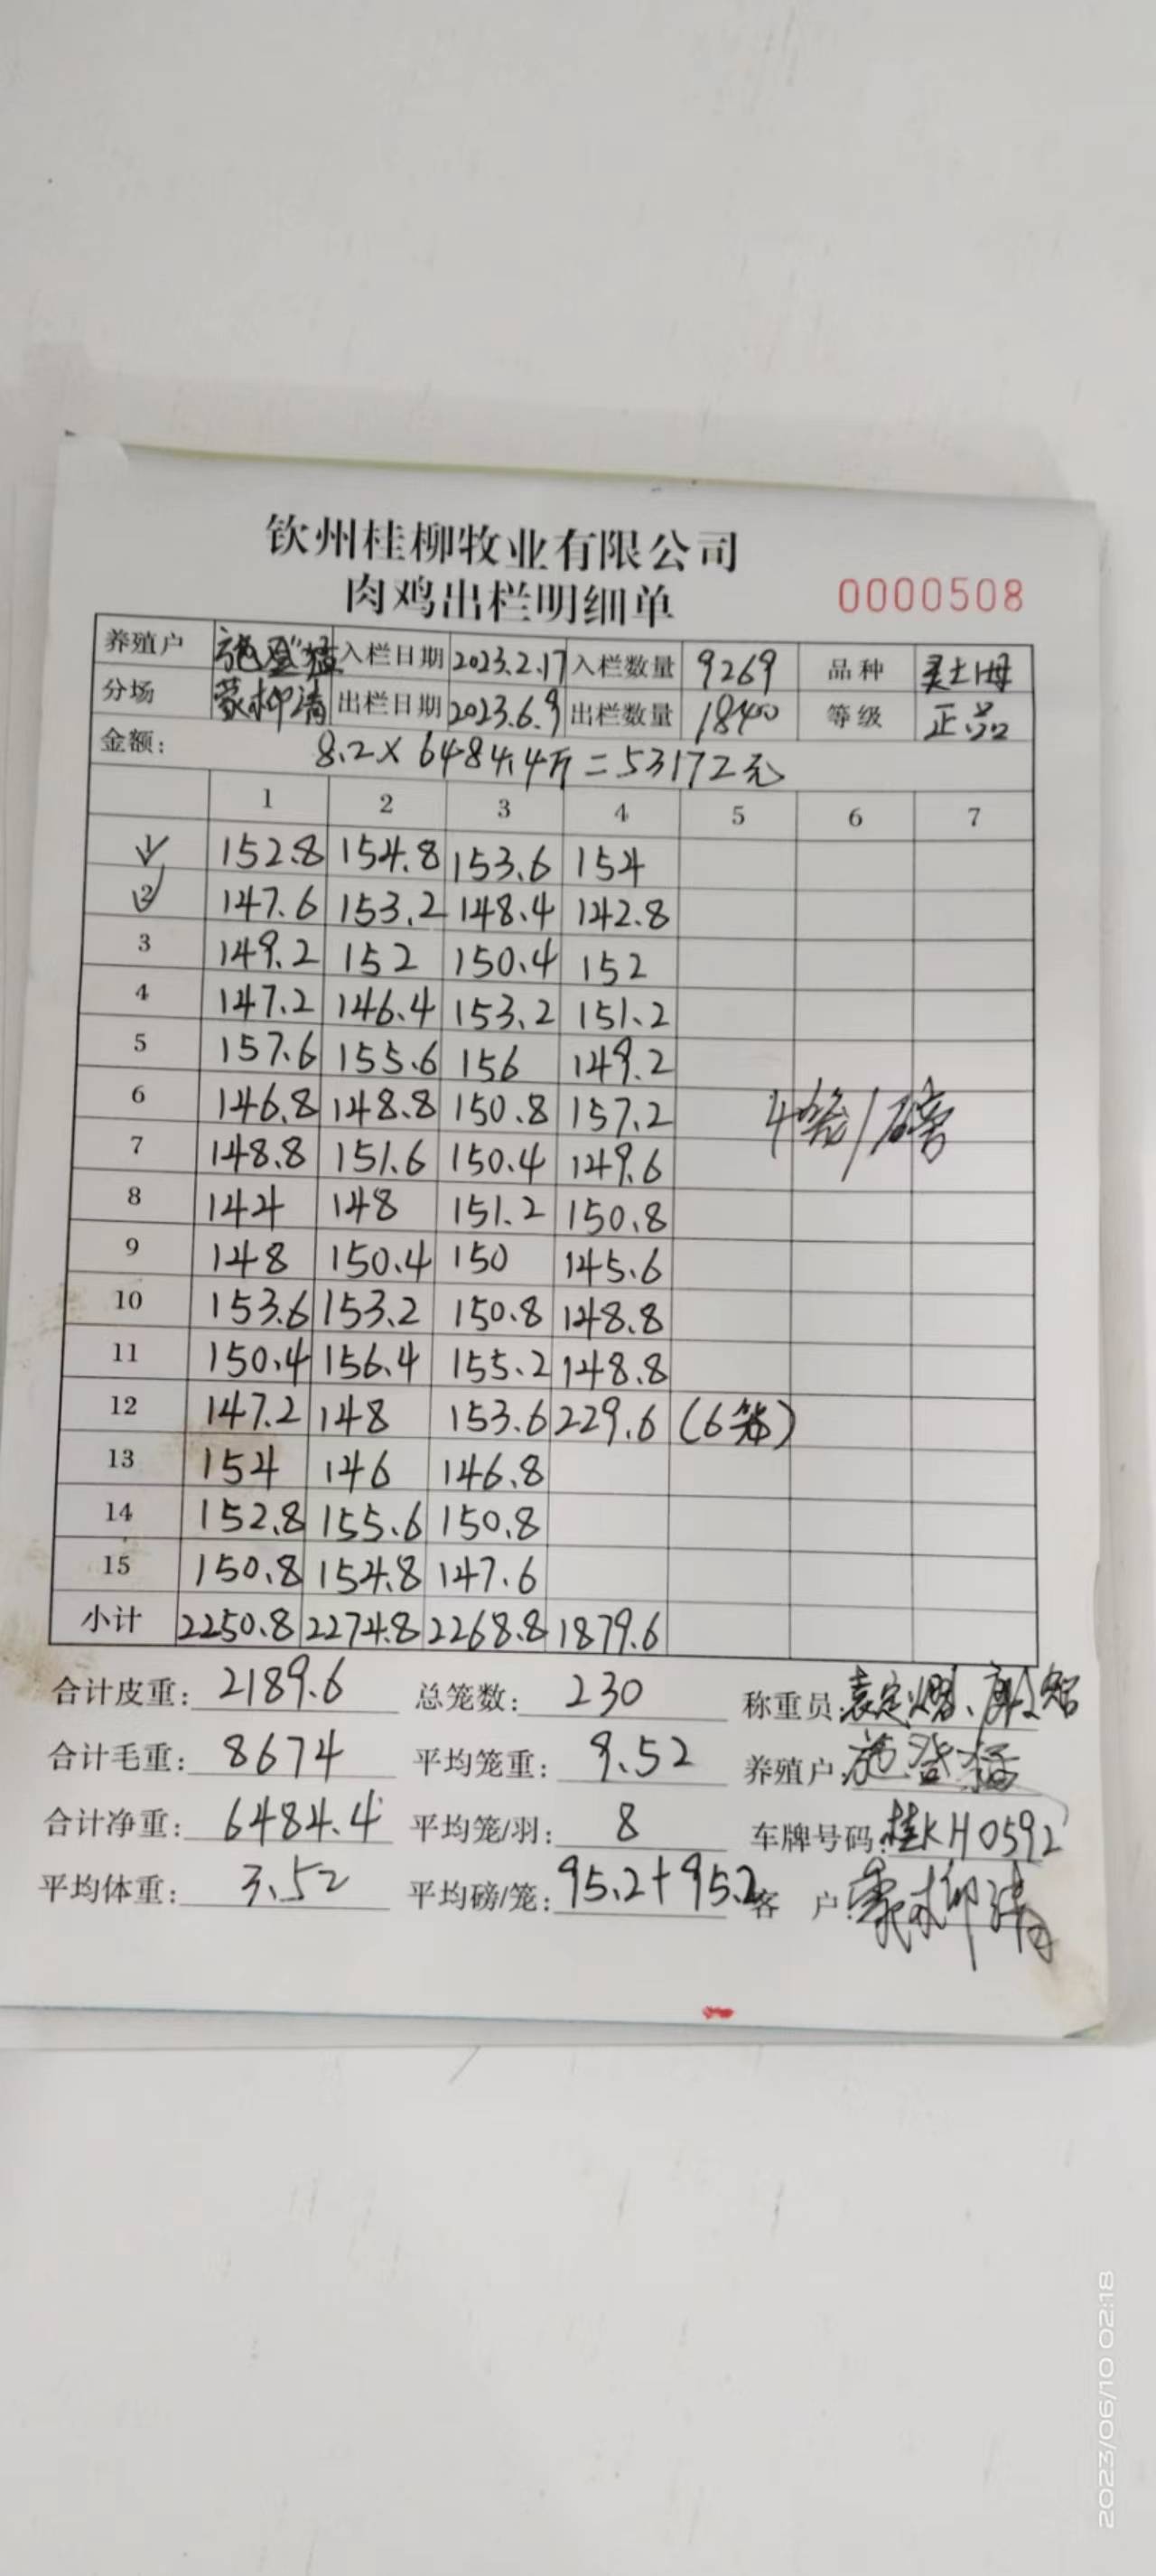 钦州桂柳牧业有限公司
肉鸡出栏明细单 0000508
养殖户 施登猛 入栏日期 2023.2.17 入栏数量 9269 品种 土
分场 蒙柳清 出栏日期 2023.6.9 出栏数量 1840 等级 正品
金额: 8.2×6484.4斤=53172元
1 2 3 4 5 6 7
1 152.8 154.8 153.6 154
2 147.6 153.2 148.4 142.8
3 149.2 152 150.4 152
4 147.2 146.4 153.2 151.2
5 157.6 155.6 156 149.2
6 146.8 148.8 150.8 157.2 4笼/磅
7 148.8 151.6 150.4 149.6
8 144 148 151.2 150.8
9 148 150.4 150 145.6
10 153.6 153.2 150.8 148.8
11 150.4 156.4 155.2 148.8
12 147.2 148 153.6 229.6 (6笼)
13 154 146 146.8
14 152.8 155.6 150.8
15 150.8 154.8 147.6
小计 2250.8 2274.8 2268.8 1879.6
合计皮重: 2189.6 总笼数: 230 称重员:
合计毛重: 8674 平均笼重: 9.52 养殖户: 施登猛
合计净重: 6484.4 平均笼/羽: 8 车牌号码: 桂KH0592
平均体重: 3.52 平均磅/笼: 95.2+95.2 客户: 蒙柳清
2023/06/10 02:18